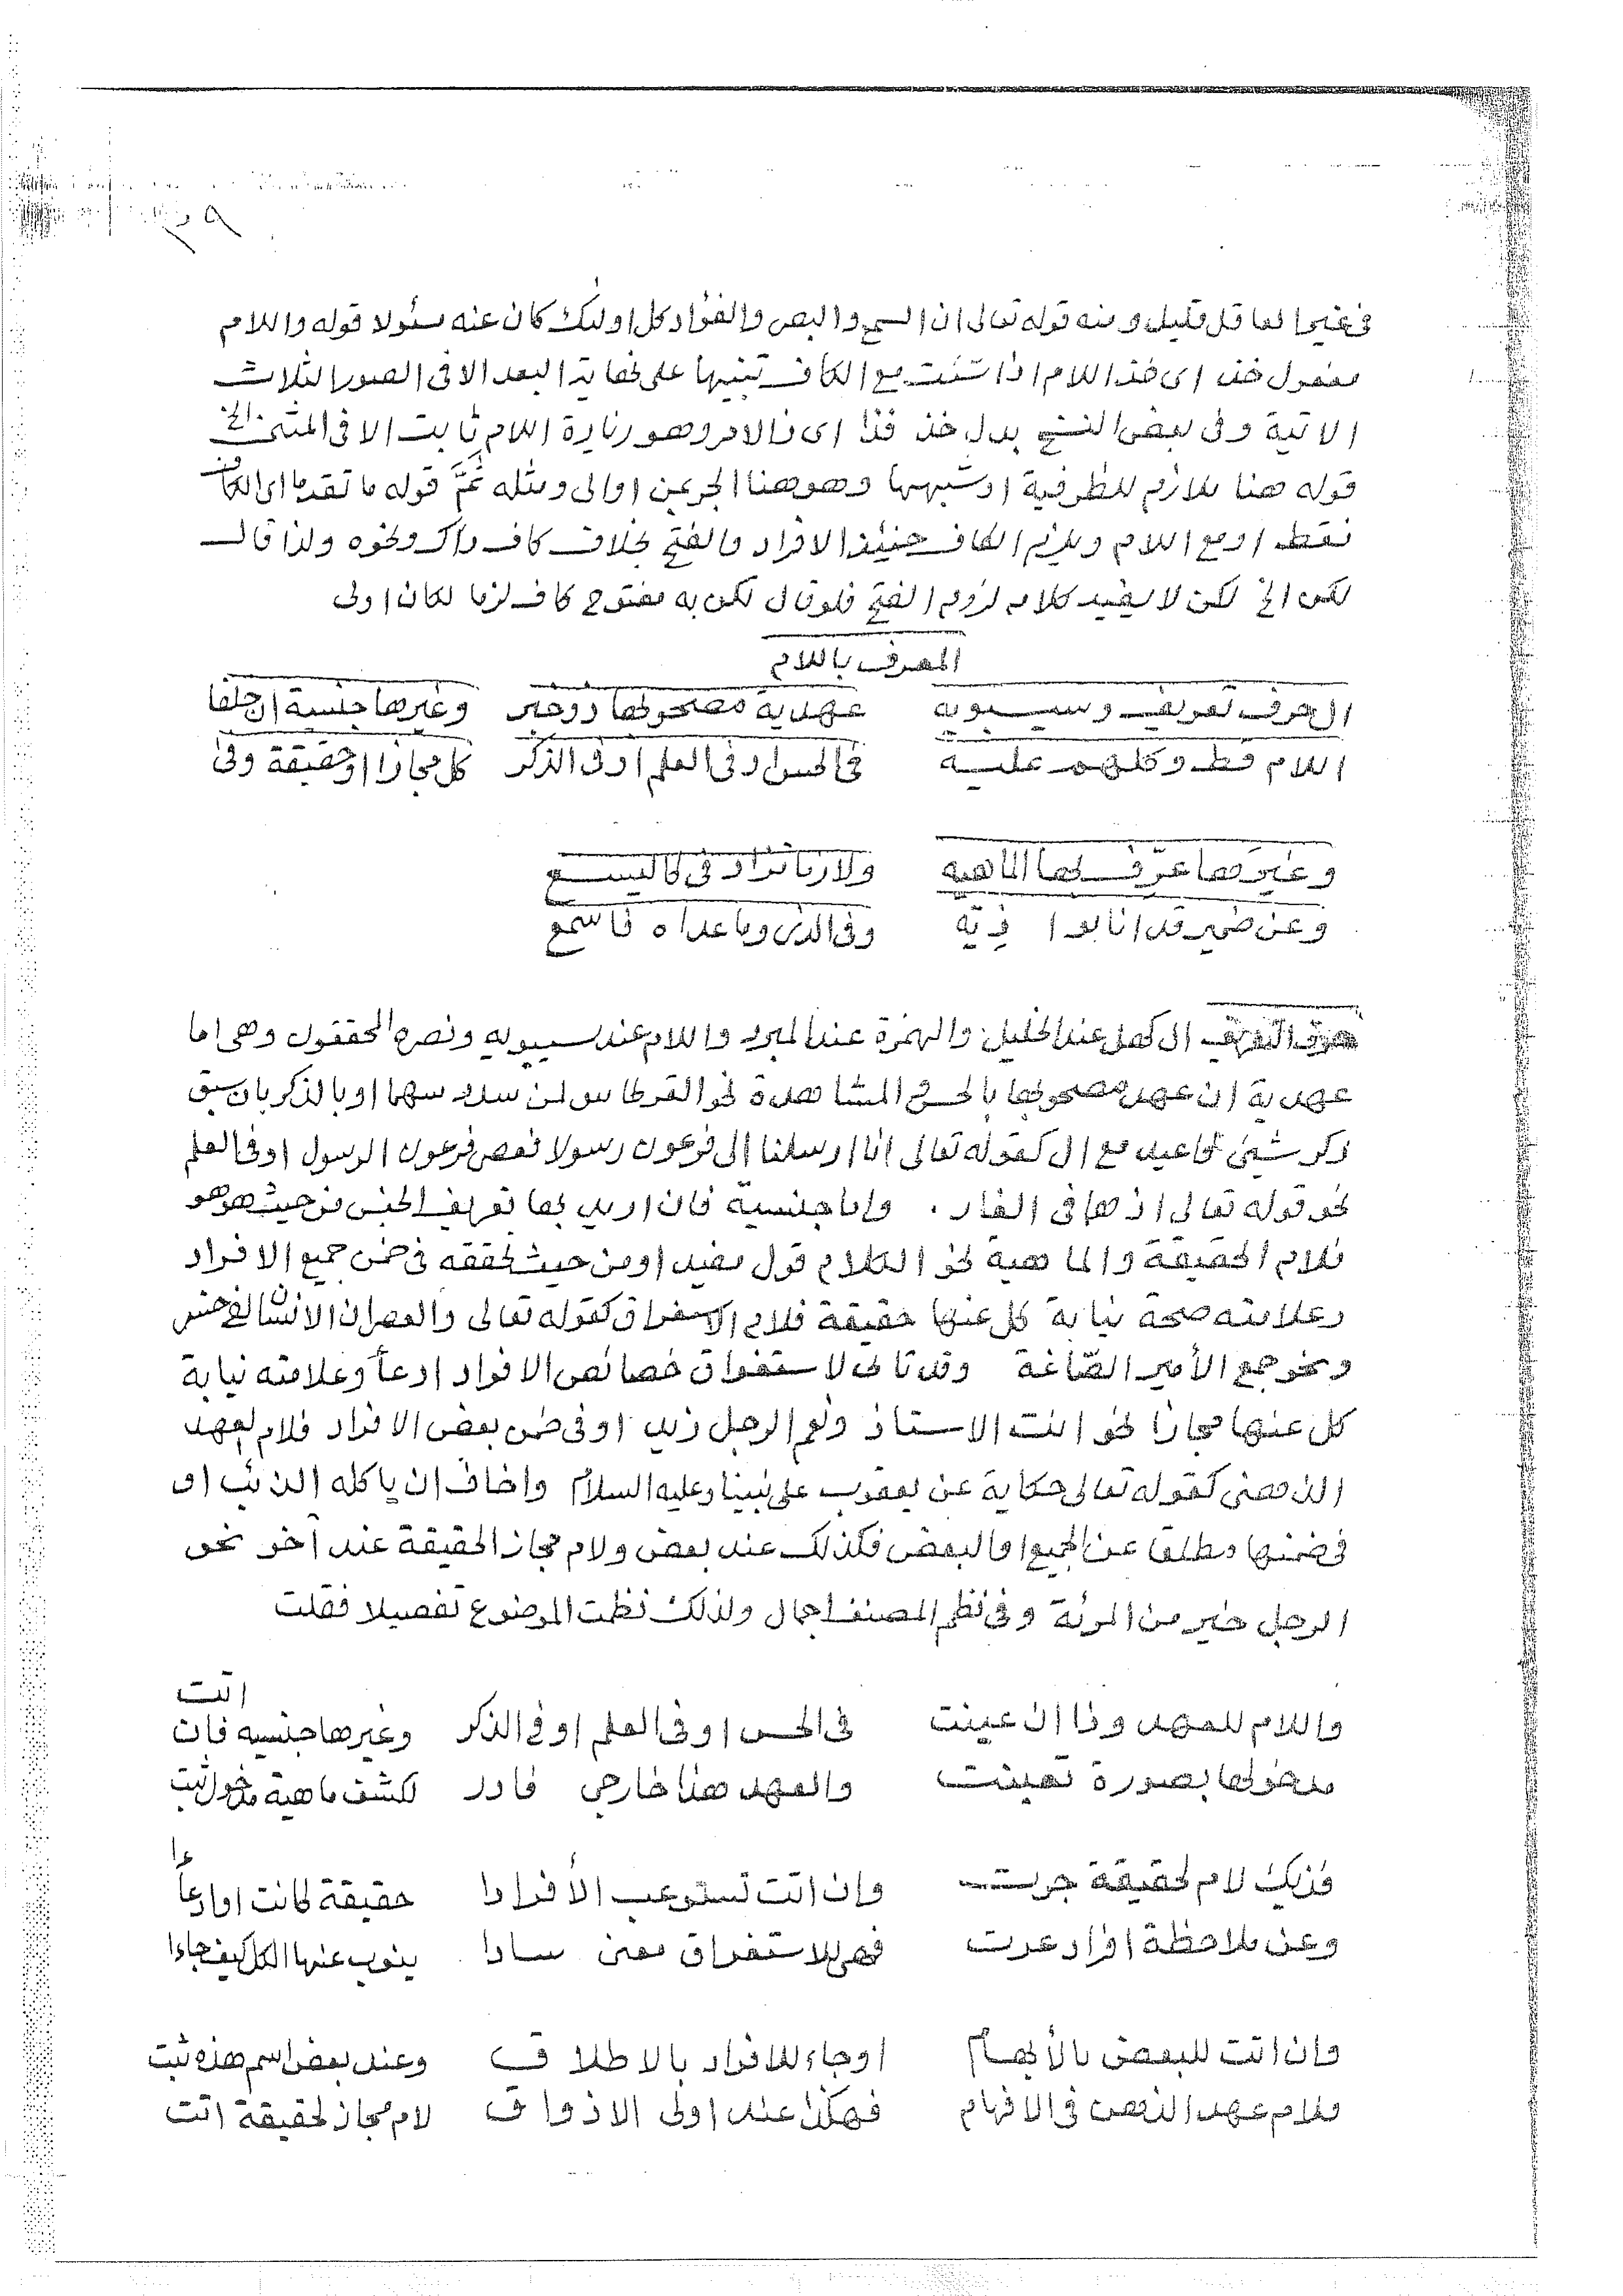 فى غير العاقل قليل ومنه قوله تعالى ان السمع والبصر والفؤاد كل اولئك كان عنه مسئولا قوله واللام
مفعول خذ اى خذ اللام اذا شئت مع الكاف تنبيها على نهاية البعد الا فى الصور الثلاث
الاتية وفى بعض النسخ بدل خذ فذا اى ذا الامر وهو زيادة اللام ثابت الا فى المثنى الخ
قوله هنا ملازم للظرفية او شبهها وهو هنا الجر بمن او الى ومثله ثَمَّ قوله ما تقدما اى الكاف
فقط او مع اللام ويلزم الكاف حينئذ الافراد والفتح بخلاف كاف ذاك ونحوه ولذا قال
لكن الخ لكن لا يفيد كلامه لزوم الفتح فلو قال لكن به مفتوح كاف لزما لكان اولى
المعرف باللام
ال حرف تعريف وسيبويه عهدية مصحوبها ذو حبر وغيرها جنسية ان خلفا
اللام قط وكلهم عليه فى الحس او فى العلم او فى الذكر كل مجازا او حقيقة وفى
وغير ها عرّف بها الماهيه ولازما تزاد فى كاليسع
وعن ضمير قد انابوا فيه وفى الذى وما عداه فاسمع
حرف التعريف ال كهل عند الخليل والهمزة عند المبرد واللام عند سيبويه ونصره المحققون وهى اما
عهدية ان عهد مصحوبها بالحس المشاهدة نحو القرطاس لمن سدد سهما او بالذكر بان سبق
ذكر شيئ ثم اعيد مع ال كقوله تعالى انا ارسلنا الى فرعون رسولا فعصى فرعون الرسول او فى العلم
نحو قوله تعالى اذ هما فى الغار . واما جنسية فان اريد بها تعريف الجنس من حيث هو هو
فلام الحقيقة والماهية نحو الكلام قول مفيد او من حيث تحققه فى ضمن جميع الافراد
وعلامته صحة نيابة كل عنها حقيقة فلام الاستغراق كقوله تعالى والعصر ان الانسان لفى خسر
ونحو جمع الأمير الصّاغة وقد تاتى لاستغراق خصائص الافراد ادعاً وعلامته نيابة
كل عنها مجازا نحو انت الاستاذ ونعم الرجل زيد او فى ضمن بعض الافراد فلام لعهد
الذهنى كقوله تعالى حكاية عن يعقوب على نبينا وعليه السلام واخاف ان ياكله الذئب او
فى ضمنها مطلقا عن الجميع او البعض فكذلك عند بعض ولام مجاز الحقيقة عند آخر نحو
الرجل خير من المرئة وفى نظم المصنف اجمال ولذلك نظمت الموضوع تفصيلا فقلت
واللام للعهد وذا ان عينت فى الحس او فى العلم او فى الذكر وغيرها جنسيه فان اتت
مدخولها بصورة تعينت والعهد هذا خارجى فادر لكشف ماهية مدخول ثبت
فذيك لام لحقيقة جرت وان اتت تستوعب الأفرادا حقيقة كانت او ادعاً
وعن ملاحظة افراد عرت فهى للاستغراق معنى سادا ينوب عنها الكل كيف جاءا
وان اتت للبعض بالأبهام او جاء للافراد بالاطلاق وعند بعض اسم هذه ثبت
فلام عهد الذهن فى الافهام فهكذا عند اولى الاذواق لام مجاز لحقيقة اتت